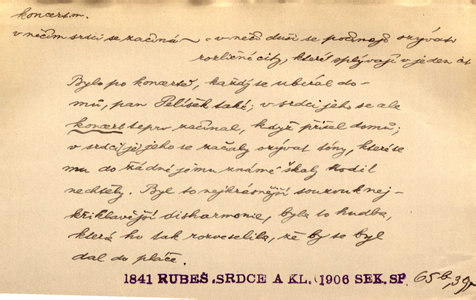 koncertm.
v něčím srdci se začíná – v něčí duši se počínají ozývati
rozličné city, které splývají v jeden
Bylo po koncertě, každý se ubíral do-
mů, pan Pelíšek také; v srdci jeho se ale
koncert teprv začínal, když přišel domů;
v srdci jeho se začaly ozývat tóny, které se
mu do žádné jemu známé škály hodit
nechtěly. Byl to nejkrásnější souzvuk nej-
křiklavější disharmonie, byla to hudba,
která ho tak rozveselila, že by se byl
dal do pláče.
1841 RUBEŠ, SRDCE A KL. (1906 SEK. SP. 65b, 39